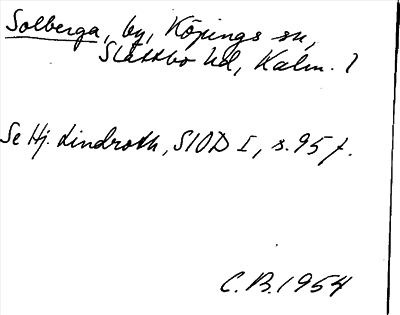 Solberga, by, Köpings sn,
Slättbo hd, Kalm. l
Se Hj. Lindroth, SIOD I, s. 95 f.
C.B. 1954